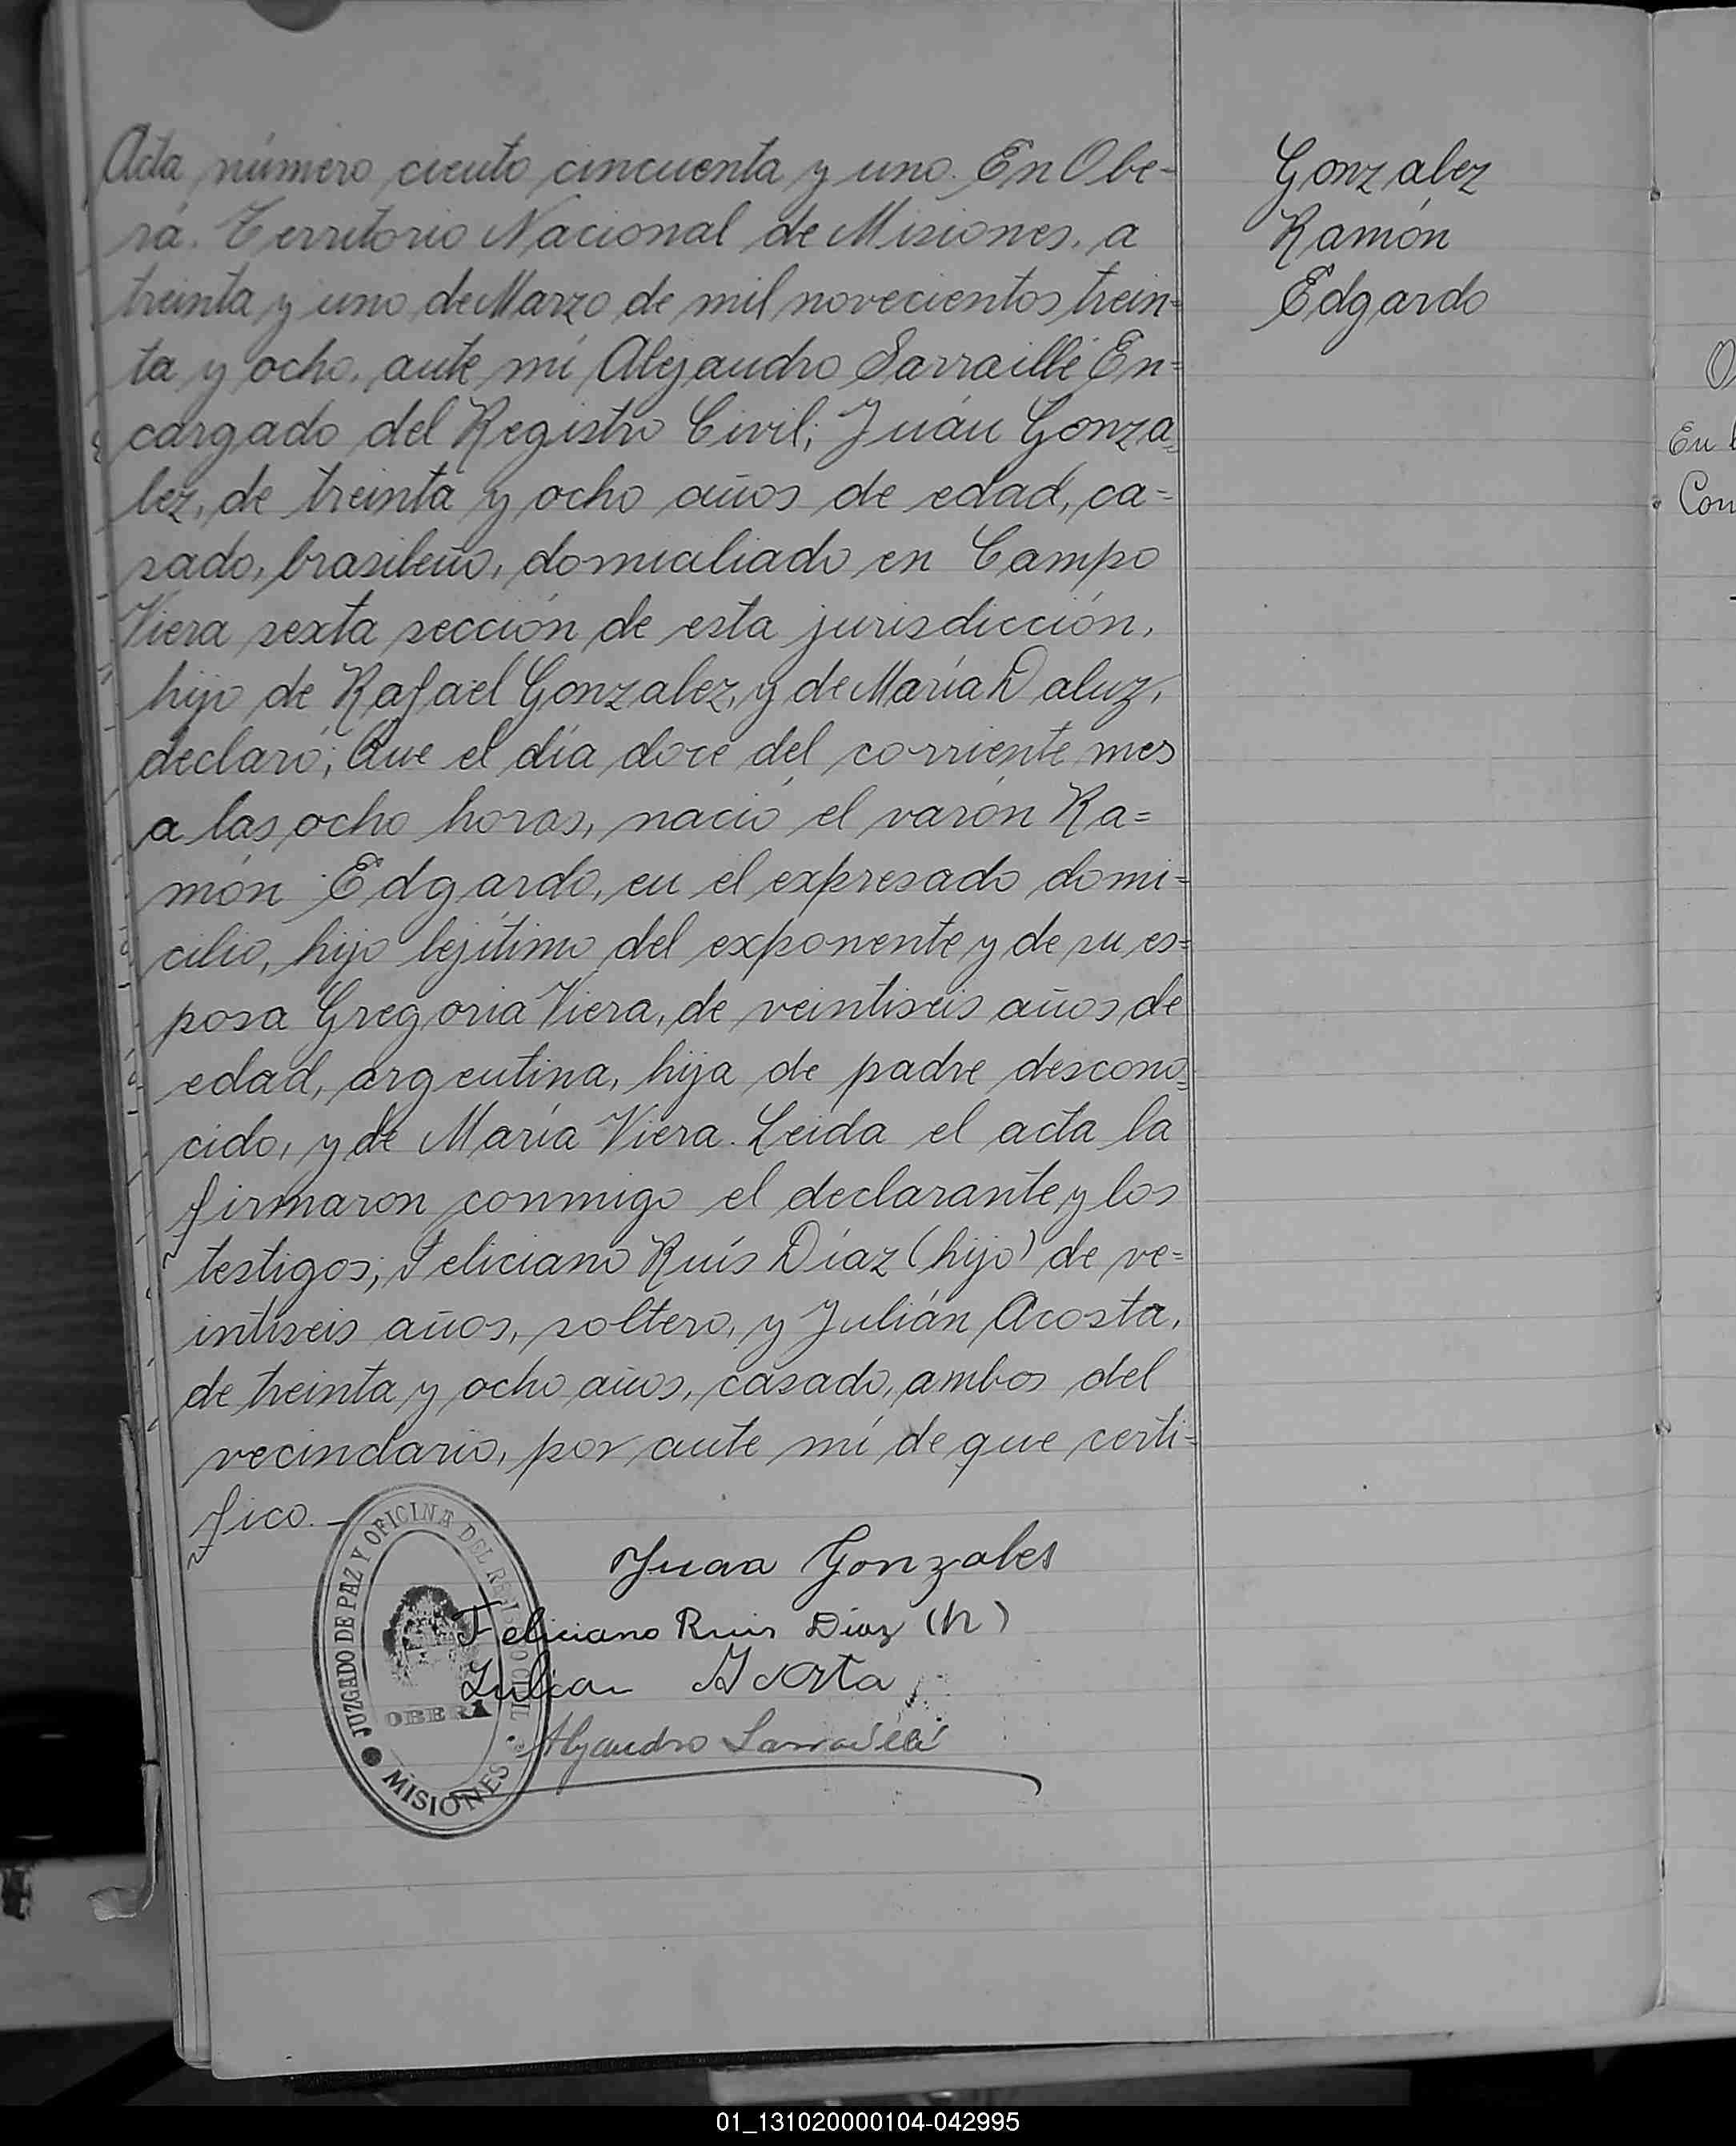 Acta número ciento cincuenta y uno. En Obe-
rá. Territorio Nacional de Misiones, a
treinta y uno de Marzo de mil novecientos trein=
ta y ocho, ante mí Alejandro Sarraillé En=
cargado del Registro Civil; Juán Gonza=
lez, de treinta y ocho años de edad, ca=
sado, brasileño, domiciliado en Campo
Viera sexta sección de esta jurisdicción,
hijo de Rafael Gonzalez, y de María Daluz,
declaró; Que el día doce del corriente mes
a las ocho horas, nació el varón Ra=
món Edgardo, en el expresado domi=
cilio, hijo lejítimo del exponente y de su es=
posa Gregoria Viera, de veintiseis años de
edad, argentina, hija de padre descono=
cido, y de María Viera. Leida el acta la
firmaron conmigo el declarante y los
testigos; Feliciano Ruís Díaz (hijo) de ve=
intiseis años, soltero, y Julián Acosta,
de treinta y ocho años, casado, ambos del
vecindario, por ante mí de que certi=
fico. -
Gonzalez
Ramón
Edgardo
Juan Gonzales
Feliciano Ruis Díaz (h)
Julian Acosta
Alejandro Sarraillé
JUZGADO DE PAZ Y OFICINA DEL REGISTRO CIVIL
OBERA
MISIONES
En
Con
01_131020000104-042995